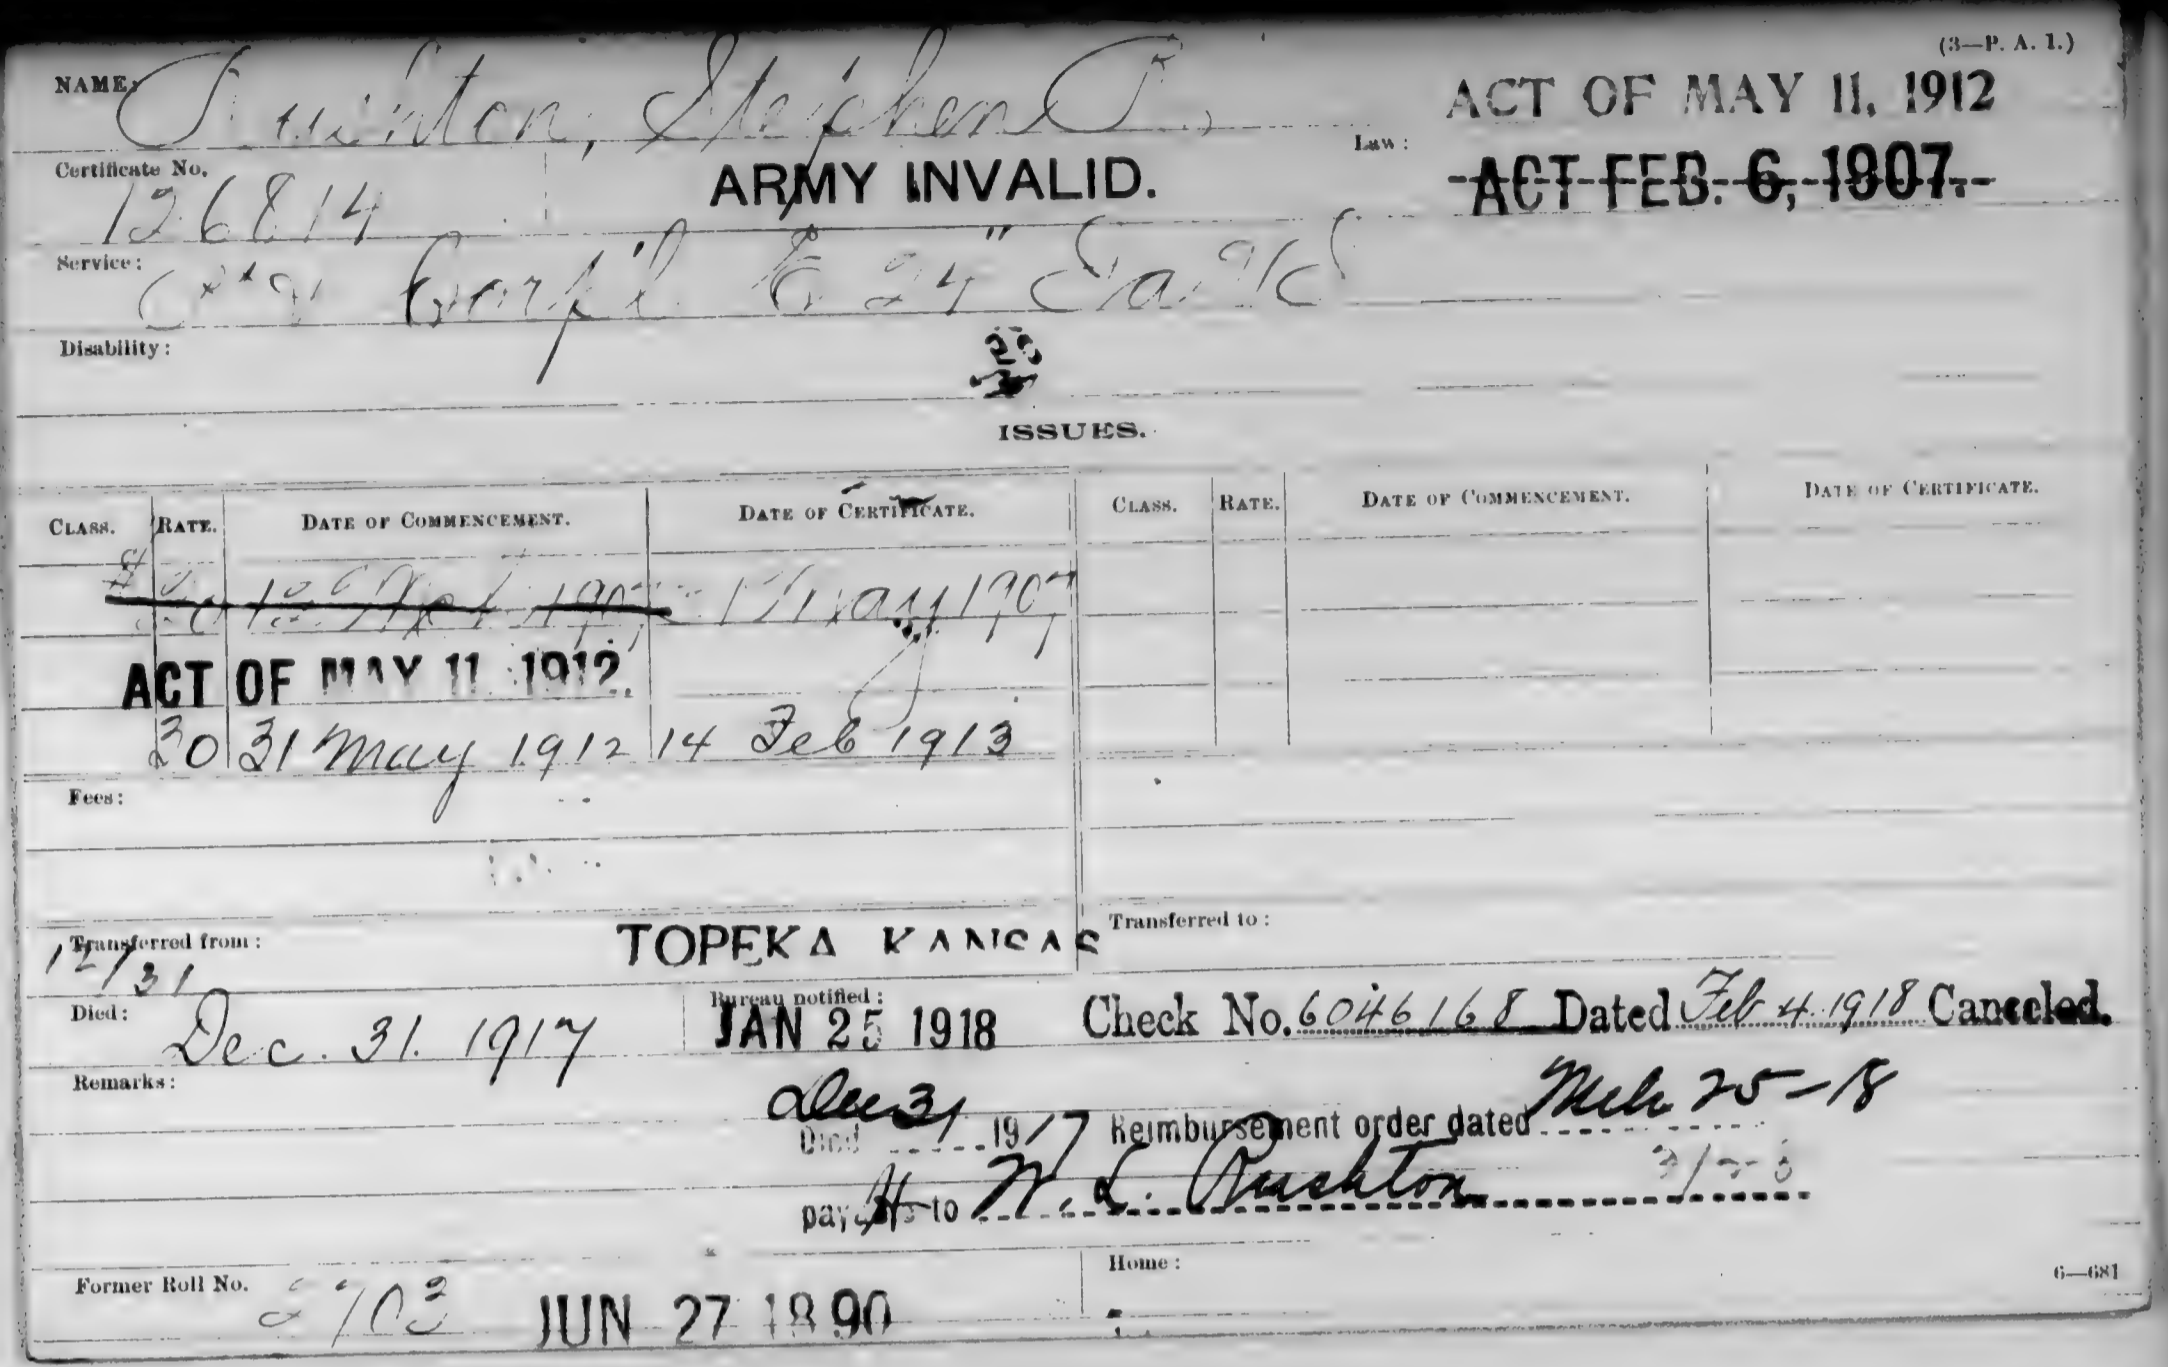 (3—P. A. 1.)
NAME: Rushton, Stephen P.
Law: ACT OF MAY 11, 1912
ACT FEB. 6, 1907.
Certificate No.
126814
ARMY INVALID.
Service:
Corp'l 24" Ia.
Disability:
ISSUES.
CLASS. RATE. DATE OF COMMENCEMENT. DATE OF CERTIFICATE. CLASS. RATE. DATE OF COMMENCEMENT. DATE OF CERTIFICATE.
20 1907 May 1907
ACT OF MAY 11 1912.
30 31 May 1912 14 Feb 1913
Fees:
Transferred from: TOPEKA KANSAS Transferred to:
12/31
Died: Dec. 31. 1917
Bureau notified:
JAN 25 1918
Check No. 6046168 Dated Feb 4. 1918 Canceled.
Remarks:
Died Dec 31 1917 Reimbursement order dated Mch 25-18
to W. L. Rushton
Former Roll No. JUN 27 1890
Home:
6—681